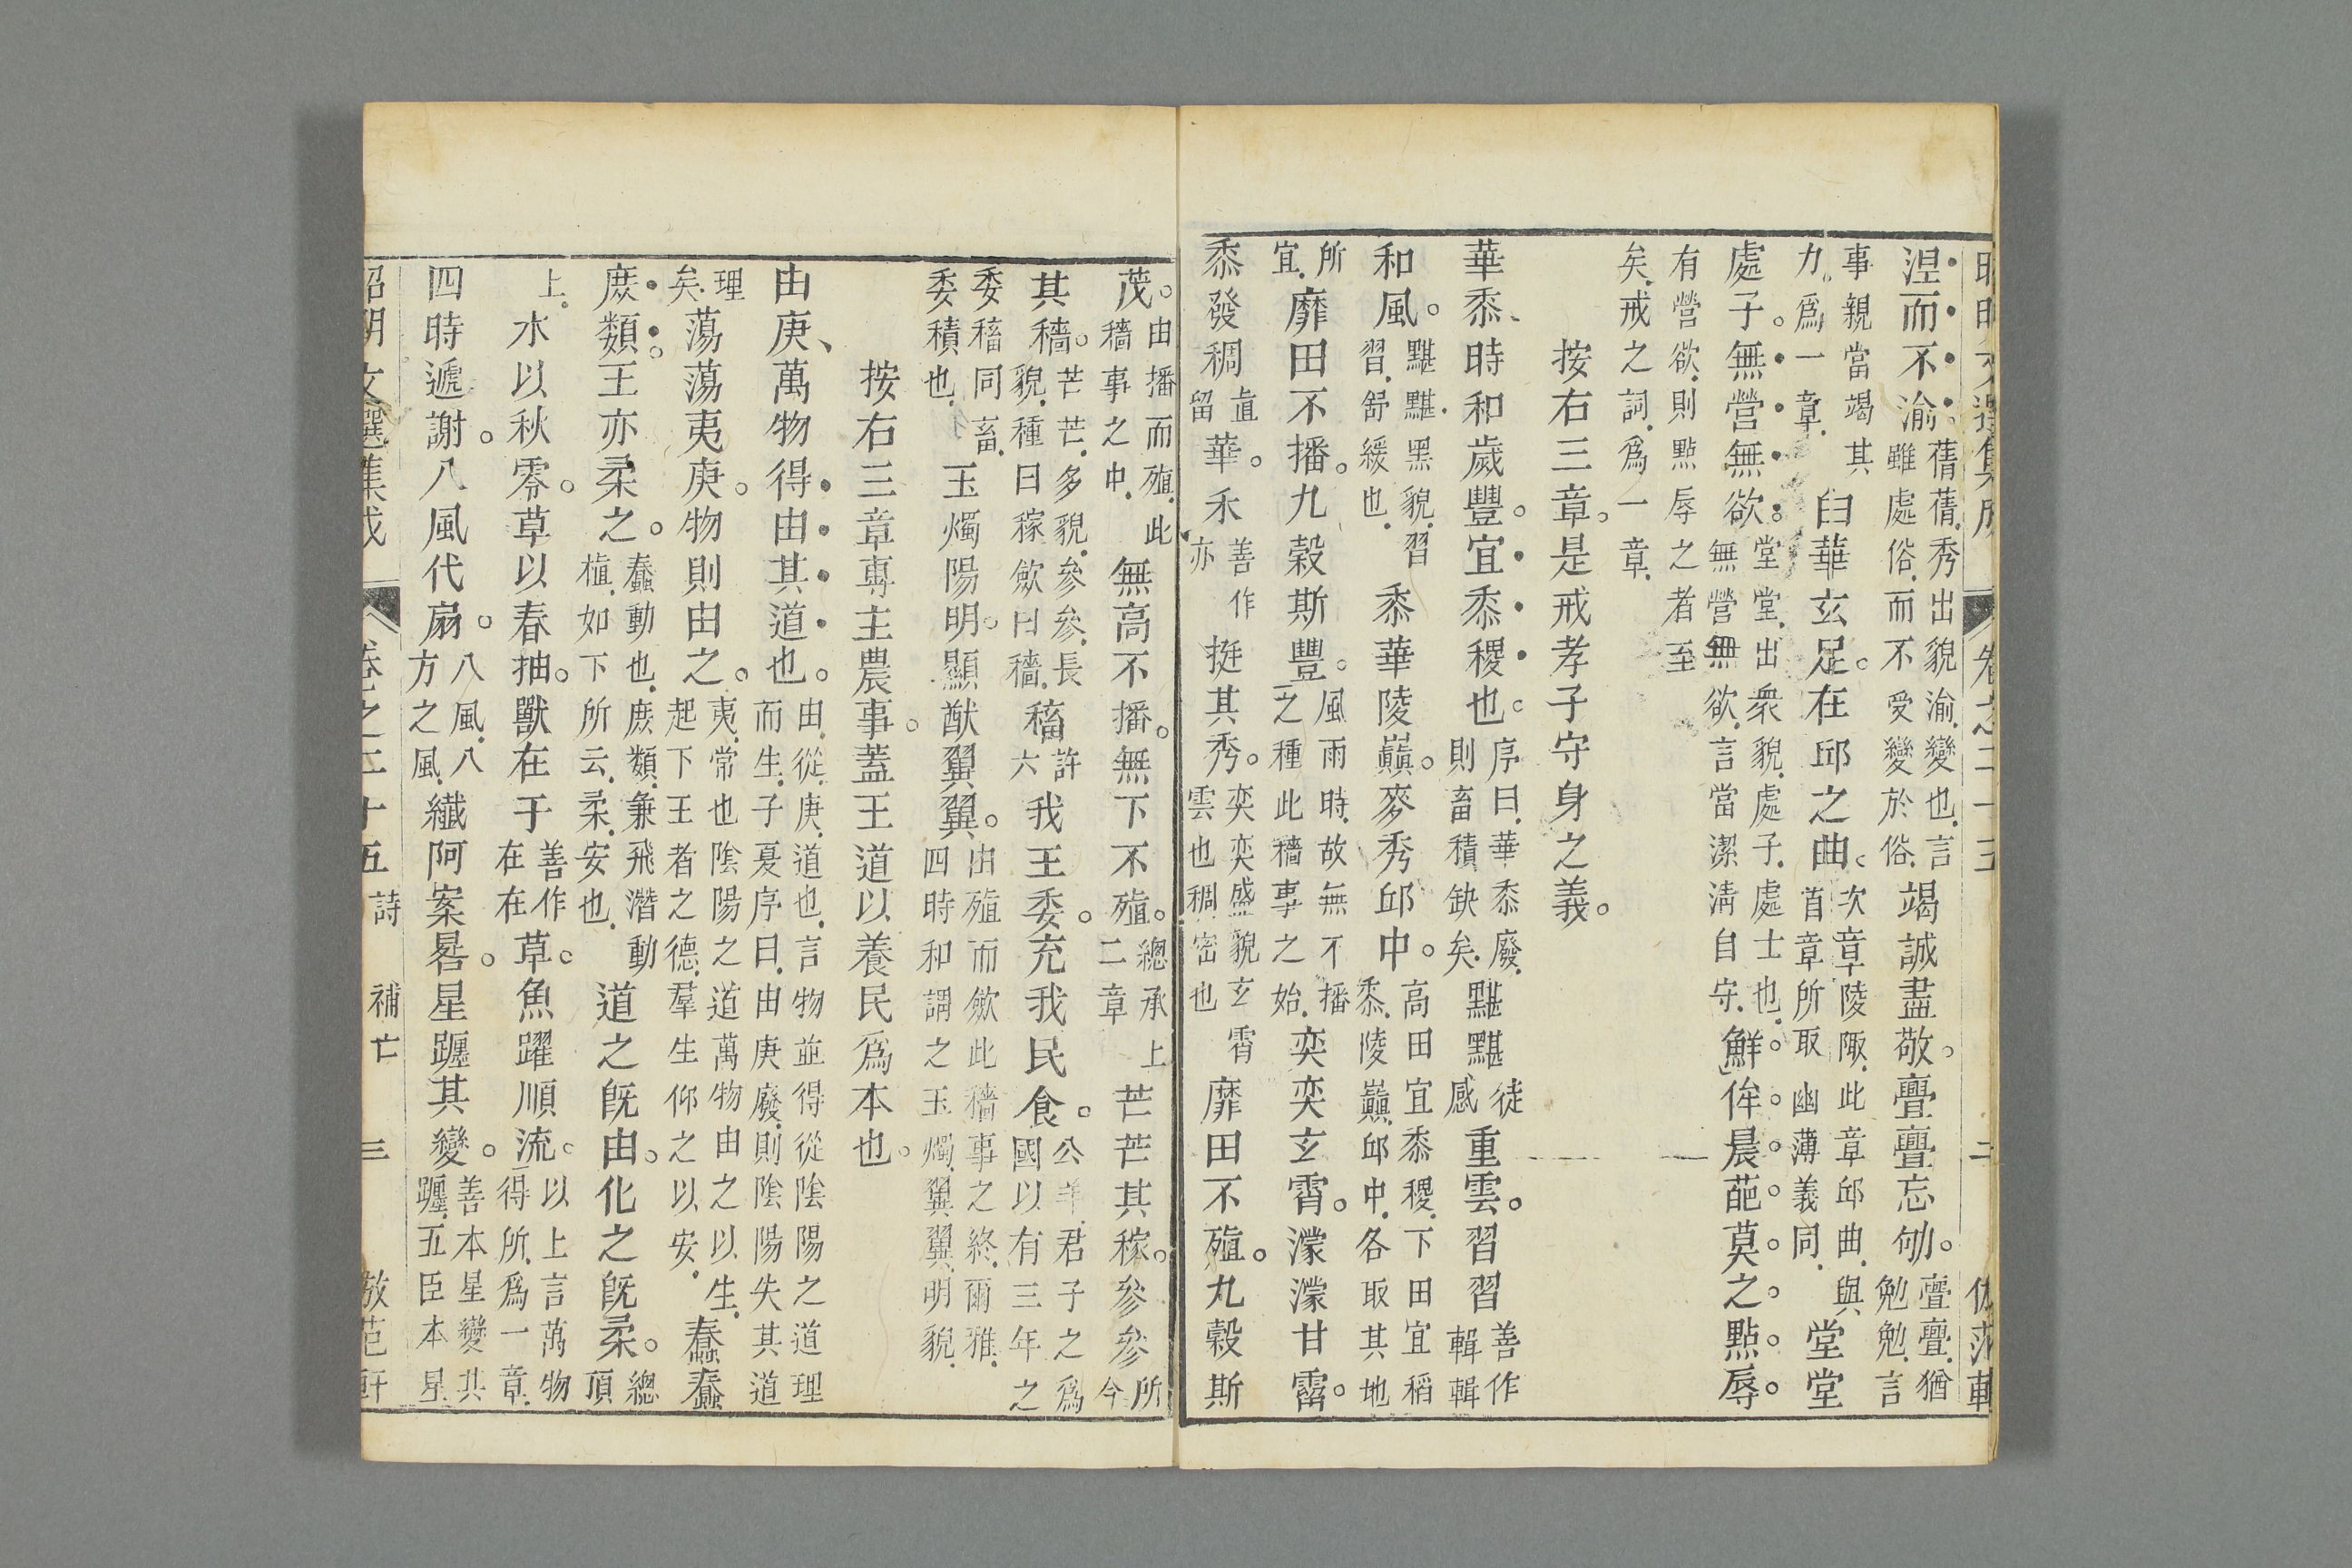 涅而不渝。蒨蒨、秀出貌渝、變也、言雖處俗、而不受變於俗、竭誠盡敬。亹亹忘劬。亹亹、猶勉勉、言
事親當竭其力。爲一章、白華玄足。在邱之曲。次章陵陬、此章邱曲、與首章所取幽薄義同、堂堂
處子。無營無欲。堂堂、出衆貌、處子、處士也、無營無欲、言當潔淸自守、鮮侔晨葩。莫之點辱。
有營欲、則點辱之者至矣、戒之詞、爲一章、
按右三章。是戒孝子守身之義。
華黍、時和歲豐。宜黍稷也。序曰、華黍廢、則畜積缺矣、黮黮徒感重雲。習習善作輯輯
和風。黮黮、黑貌、習習、舒緩也、黍華陵巓。麥秀邱中。高田宜黍稷、下田宜稻黍、陵巓、邱中、各取其地
所宜、靡田不播。九穀斯豐。風雨時、故無不播之種此穡事之始、奕奕玄霄。濛濛甘霤。
黍發稠直留華。禾善作亦挺其秀。奕奕盛貌玄霄雲也稠密也靡田不殖。九穀斯
茂。由播而殖、此穡事之中、無高不播。無下不殖。總承上二章芒芒其稼。參參所今
其穡。芒芒、多貌、參參、長貌、種曰稼斂曰穡、稸許六我王委。充我民食。公羊、君子之爲國以有三年之
委稸同畜、委積也、玉燭陽明。顯猷翼翼。由殖而斂此穡事之終、爾雅、四時和謂之玉燭、翼翼、明貌、
按右三章專主農事。蓋王道以養民爲本也。
由庚、萬物得由其道也。由、從、庚、道也、言物並得從陰陽之道理而生、子夏序曰、由庚廢、則陰陽失其道
理矣、蕩蕩夷庚。物則由之。夷、常也陰陽之道萬物由之以生、起下王者之德、羣生仰之以安、蠢蠢
庶類。王亦柔之。蠢動也、庶類、兼飛潛動植、如下所云、柔、安也、道之旣由。化之旣柔。總頂
上、木以秋零。草以春抽。獸在于善作在在草。魚躍順流。以上言萬物得所、爲一章、
四時遞謝。八風代扇。八風、八方之風、纖阿案晷。星躔其變。善本星變共躔、五臣本星
昭明文選集成 卷之二十五 詩 補亡 三